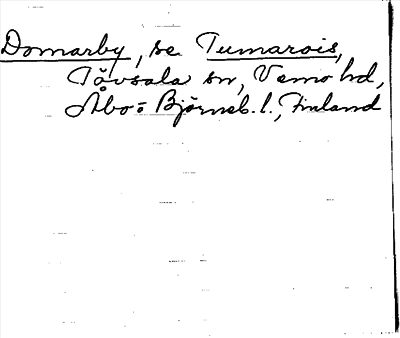 Domarby, se Tumarois,
Tövsala sn, Vemo hd,
Åbo=Björneb. l., Finland